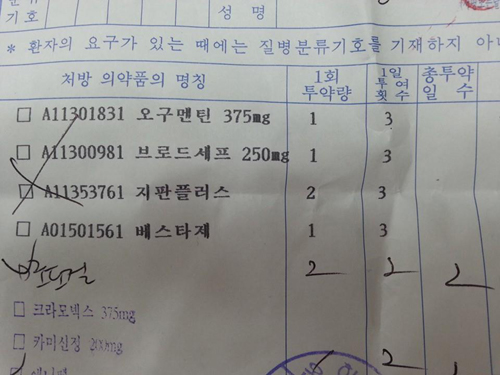 분류
기호
성 명
* 환자의 요구가 있는 때에는 질병분류기호를 기재하지 아니
처방 의약품의 명칭 1회 투약량 1일 투여 횟수 총투약 일 수
□ A11301831 오구멘틴 375mg 1 3
□ A11300981 브로드세프 250mg 1 3
□ A11353761 지판플러스 2 3
□ A01501561 베스타제 1 3
2 2 2
□ 크라모넥스 375mg
□ 카미신정 200mg
2